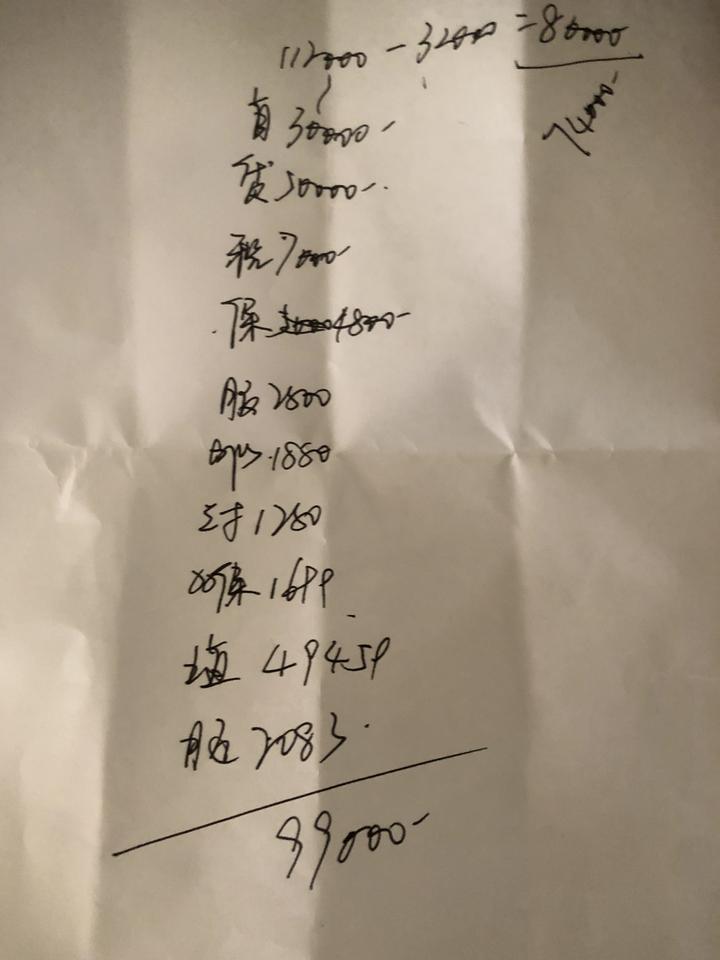 112000 - 32000 = 80000
74000-
首 30000-
贷 50000-.
税 7000-
保 4800-
服 2800
1880
1280
双保 1699
值 49459
服 2083.
99000-